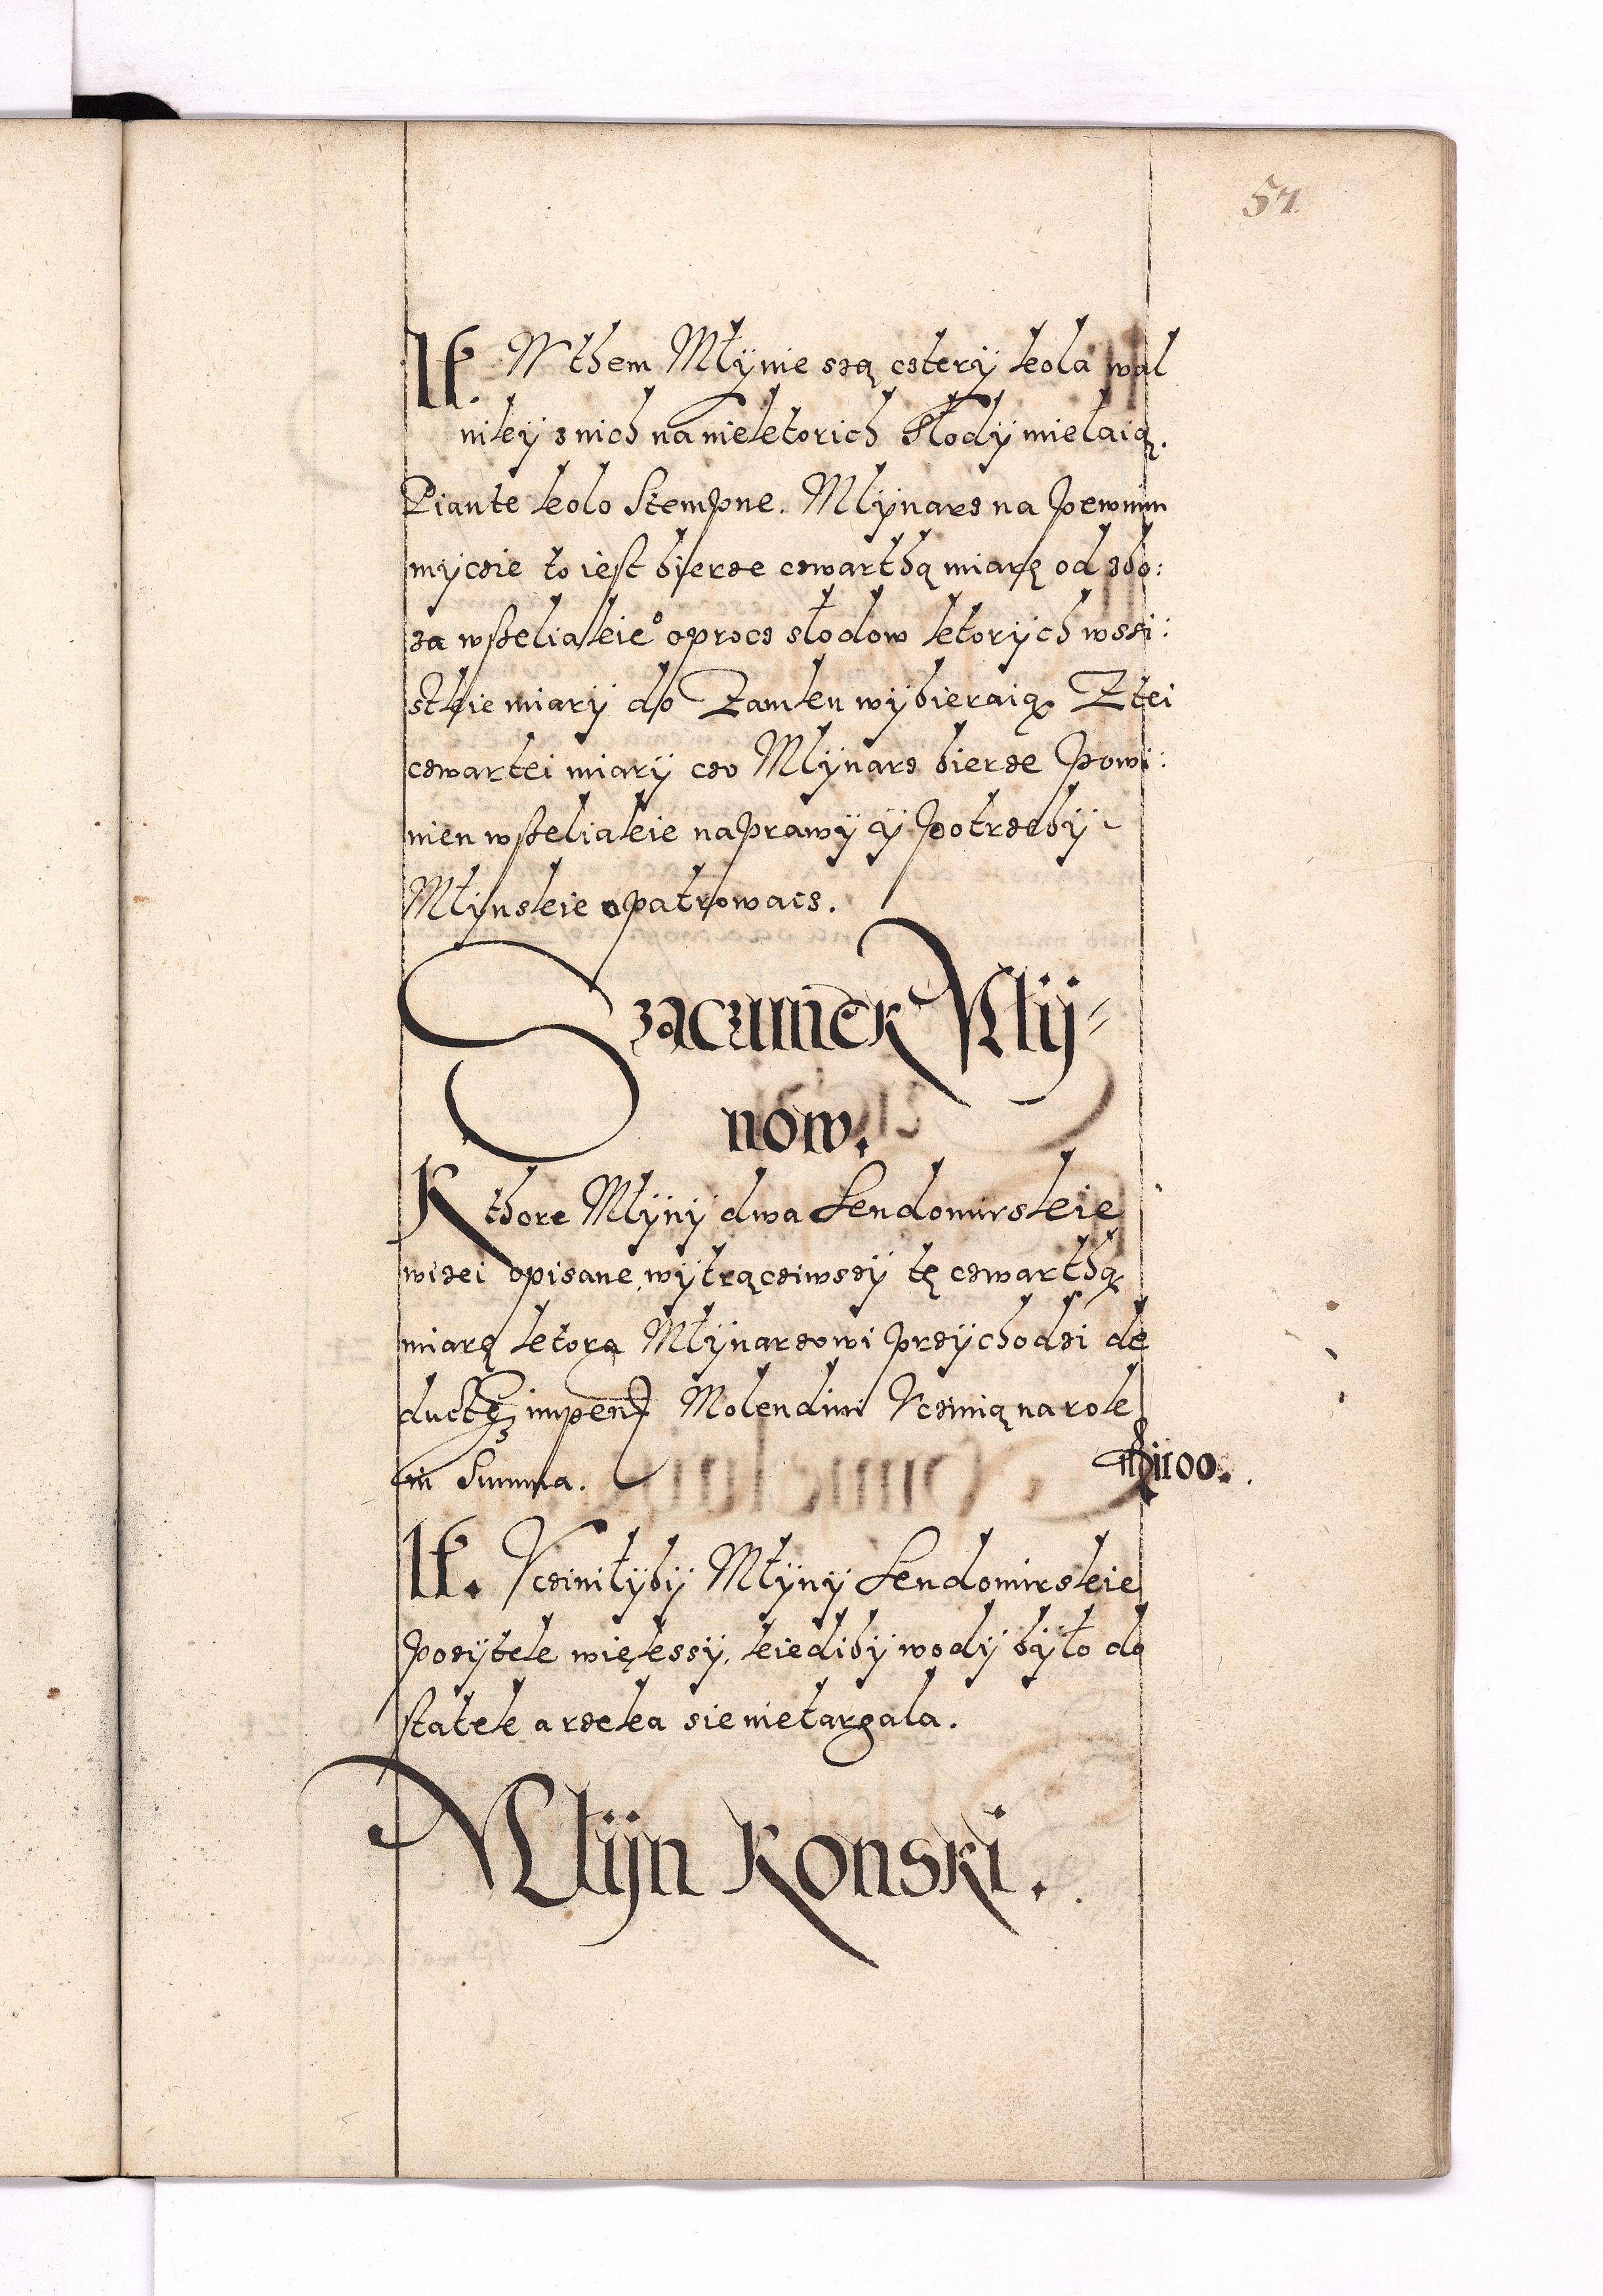 57.
It. W them Młÿnie sżą czterÿ koła wal
nikÿ z nich na niektorich Słodÿ mielaią.
Piante koło Stempne. Młÿnarz na pewnim
mÿczie to iest bierze czwarthą miarę od zbo:
za wszeliakieº oprocz słodow ktorÿch wszi:
stkie miarÿ do Zamku wÿbieraią. Z tei
czwartei miarÿ czo Młÿnarz bierze Powi:
nien wszeliakie naprawÿ ÿ potrzebÿ
Młÿnskie opatrowacz.
Szaczunek Mlÿ=
now.
Kthore Młÿnÿ dwa Sendomirskie
wizei opisane, wÿtrącziwszÿ tę czwarthą
miarę ktora Młÿnarzowi przÿchodzi de
ductis impens Molendini Vczinią na rok
in Summa.
It. Vcziniłÿbÿ Młÿnÿ Sendomirskie
pozÿtek większÿ, kiedibÿ wodÿ bÿło do
statek a rzeka sie nie targała.
Młÿn Konski.